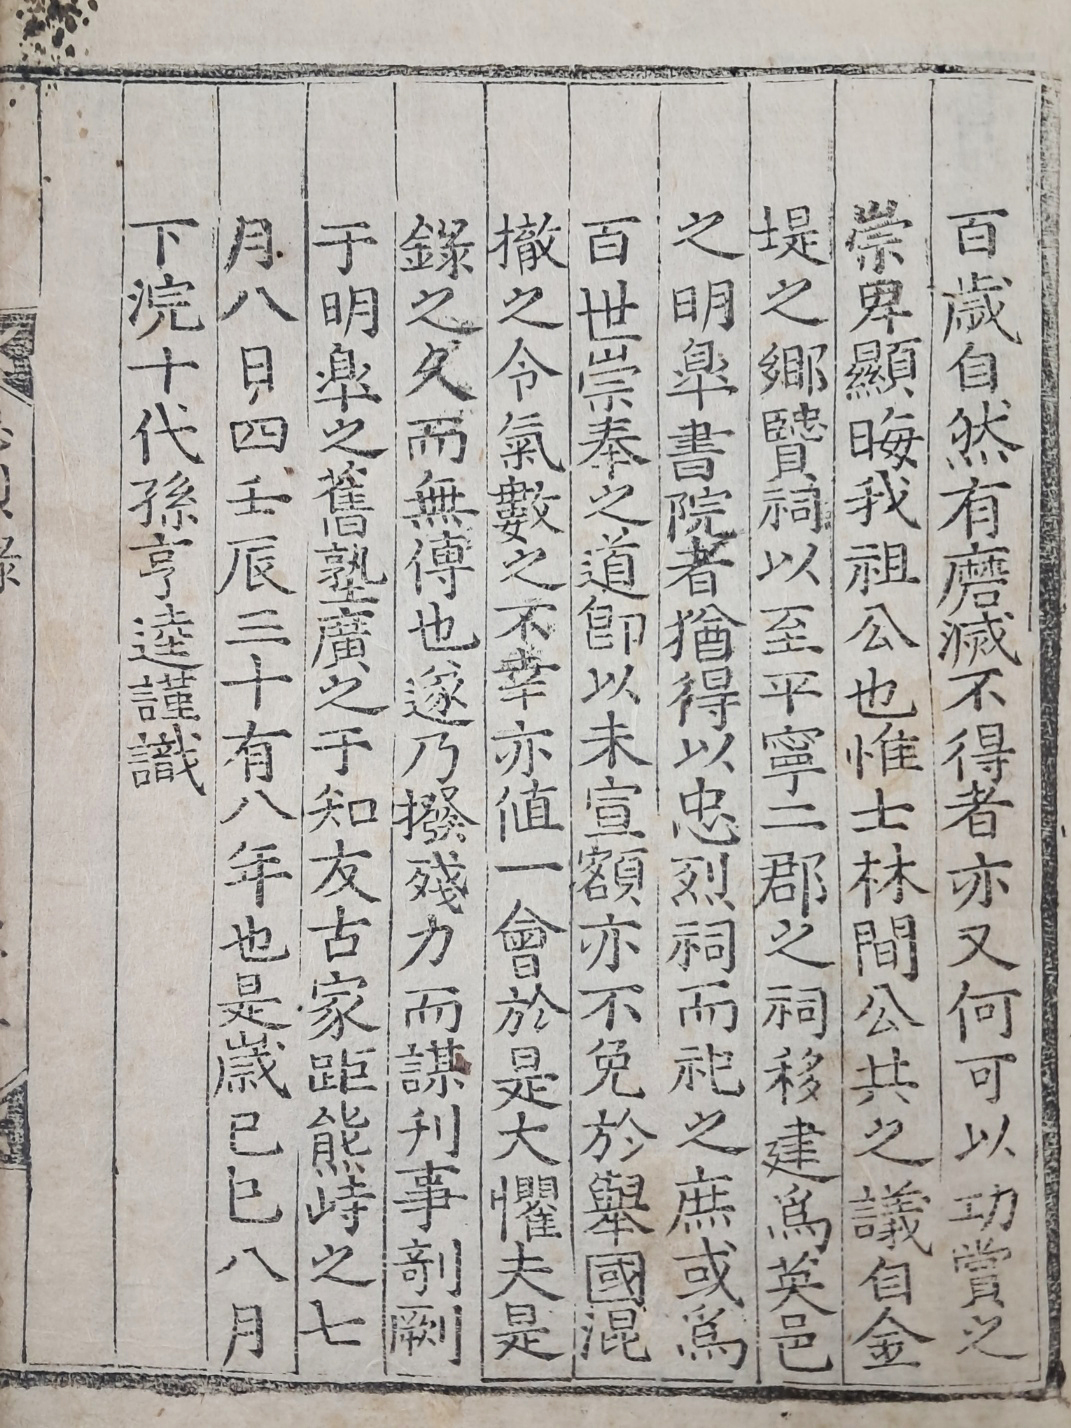 百歲自然有磨滅不得者亦又何可以功賞之
崇卑顯晦我祖公也惟士林間公共之議自金
堤之鄕賢祠以至平寧二郡之祠移建爲英邑
之明臯書院者猶得以忠烈祠而祀之庶或爲
百世崇奉之道卽以未宣額亦不免於擧國混
撤之令氣數之不幸亦値一會於是大懼夫是
錄之久而無傳也遂乃撥殘力而謀刋事剞劂
于明臯之舊塾廣之于知友古家距熊峙之七
月八日四壬辰三十有八年也是歲己巳八月
下浣十代孫亨逵謹識